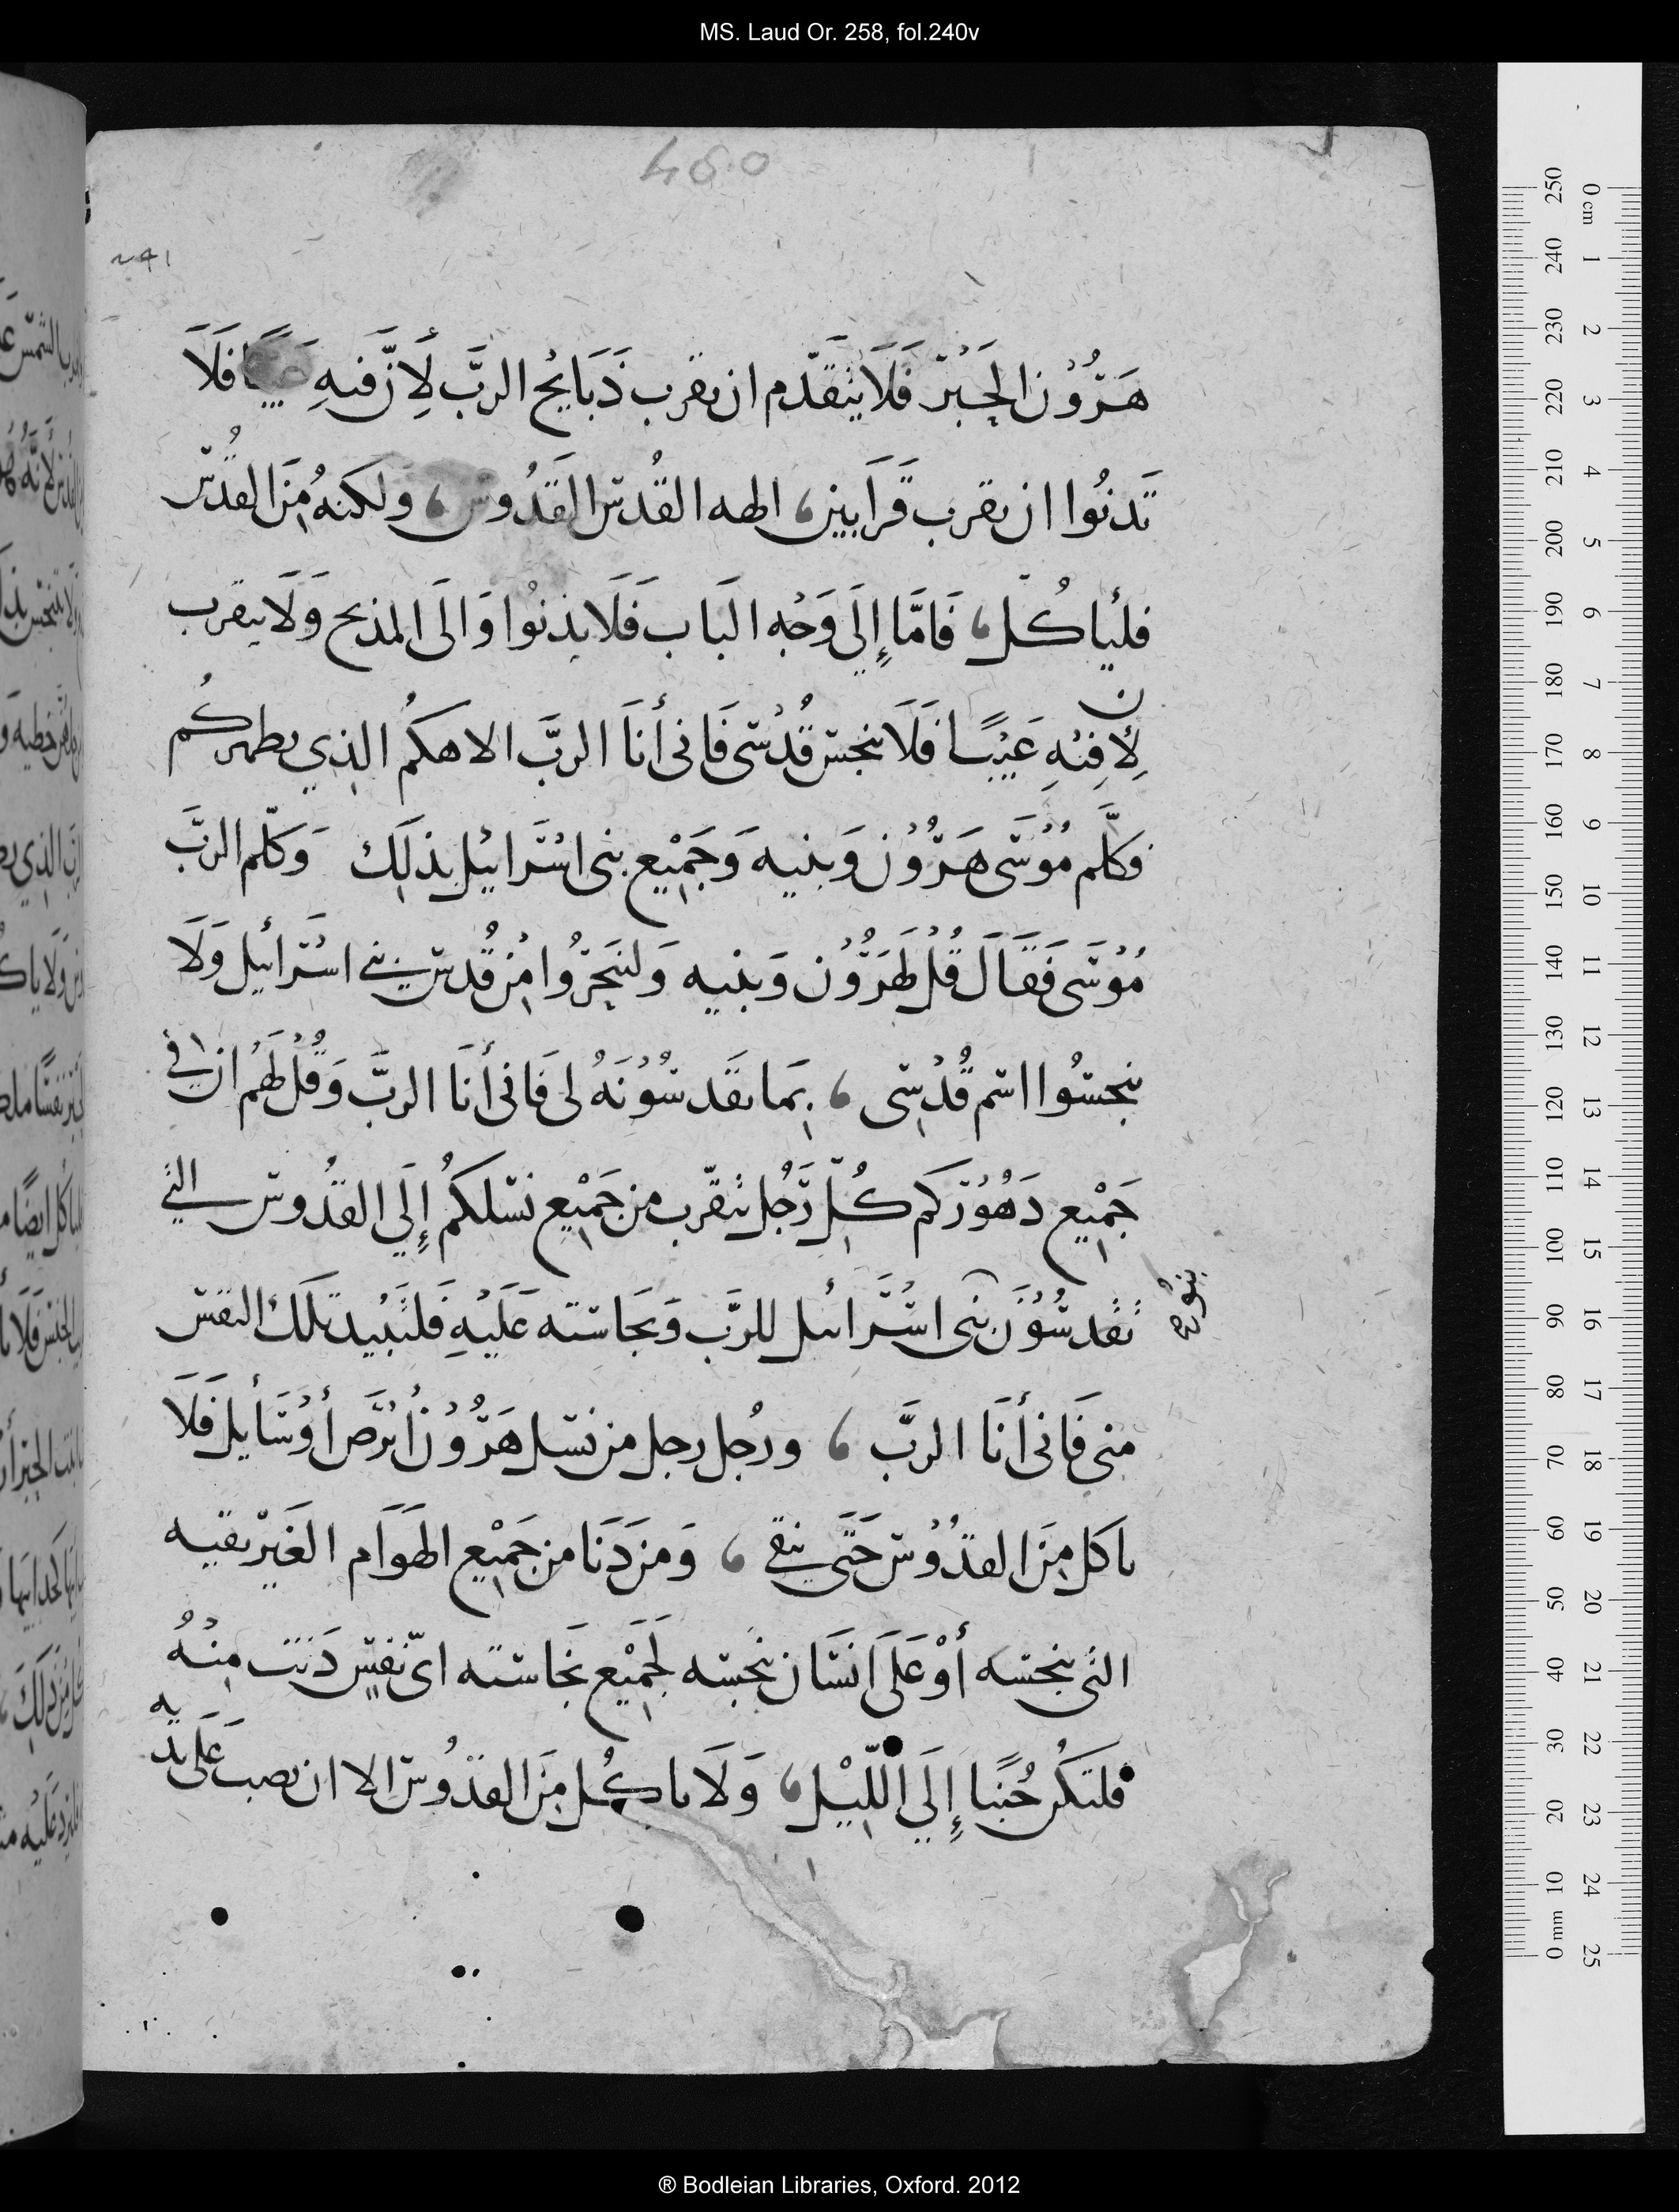 MS. Laud Or. 258, fol.240v
460
٢٤١
هَرُوُن الحَبْر فَلَا يَتَقَدّم ان يقرب ذَبَايح الربَّ لِأنّ فيهِ عَيبًا فَلَا
تَدنُوا ان يقرب قَرَابين، الهه القُدس القَدُوس، ولكنهُ مِنَ القُدس
فليأكُل، فَامَّا إِلَي وَجْه البَاب فَلَا يدنوُا وَالَى المذبح وَلَا يتقرب
لِأن فِيْهِ عَيْبًا فَلَا ينجس قُدْسى فَانى أنَا الربَّ الاهكُم الذِي يطهركُم
وَكَلَّم مُوْسَى هَرُوُن وَبنيه وَجَمِيْع بنى اسْرَائيْل بذلَك وَكَلّم الربَّ
مُوْسَى فَقَالَ قُلْ لهَرُوُن وَبنيه وَليَتحرزُوا مِن قُدس بني اسْرَائيل وَلَا
ينجسُوا اسم قُدْسِى، بِمَا يقَدسُوْنَهُ لى فَانى أنَا الربَّ وَقُلْ لهَمُ ان في
جَمِيْع دَهُوُركم كُلّ رَجُل يتقرب من جَمِيْع نسَلكُم إِلَي القدُوس التي
يُقَدسُوْنَ بنى اسْرَائيل للربَّ وَنجَاسته عَلَيْهِ فَلتَبيْد تلَك النفس
بنوُ صح
منى فَانى أنَا الربَّ، ورجُل رجل من نسَل هَرُوُن أبْرَص أوْ سَايل فَلَا
ياكل مِنَ القدُوْس حَتَى ينقي، وَمن دَنَا من جَمِيْع الهَوَام الغَيْر نقيه
التى ينجسه أوْ عَلَى انسَان ينجسه لجَمِيْع نجَاسته اى نفسٍ دَنَت مِنْهُ
فلتكُن جُنبًا إِلَي اللّيْل، وَلَا ياكُل مِنَ القدُوْس الا ان يصب عَلَى يَديه
® Bodleian Libraries, Oxford. 2012